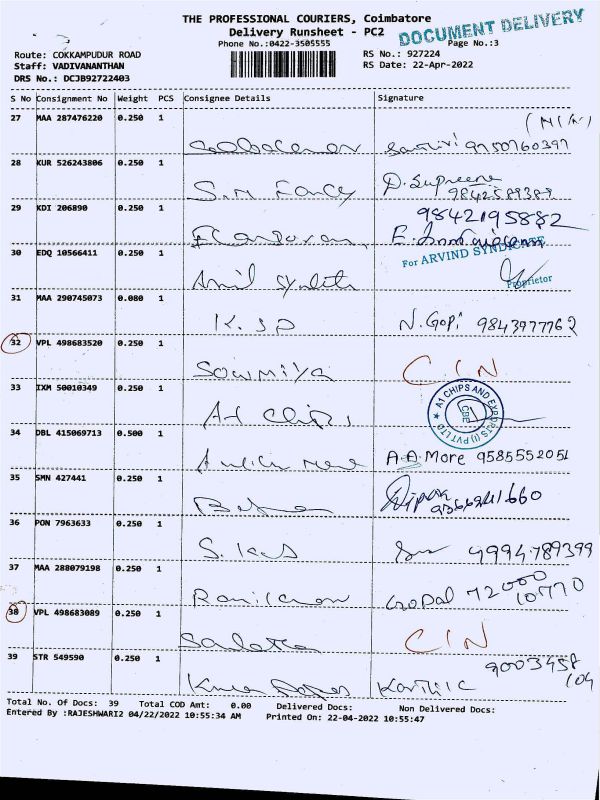 THE PROFESSIONAL COURIERS, Coimbatore
Delivery Runsheet - PC2
DOCUMENT DELIVERY
Phone No.:0422-3505555
Page No.:3
Route: COKKAMPUDUR ROAD
RS No.: 927224
Staff: VADIVANANTHAN
RS Date: 22-Apr-2022
DRS No.: DCJB92722403
S No Consignment No Weight PCS Consignee Details Signature
27 MAA 287476220 0.250 1
9750760397
28 KUR 526243806 0.250 1
S.M Fancy D. Supreene
9842589389
29 KDI 206890 0.250 1
9842195882
30 EDQ 10566411 0.250 1
For ARVIND SYNDICATE
Proprietor
31 MAA 290745073 0.080 1
K.S.P N. Gopi 9843977762
32 VPL 498683520 0.250 1
Sowmiya CIN
33 IXM 50010349 0.250 1
A1 Chips A1 CHIPS AND EXPORTS (I) PVT LTD CBE
34 DBL 415069713 0.500 1
A.A. More 9585552051
35 SMN 427441 0.250 1
Dipak
36 PON 7963633 0.250 1
4994789399
37 MAA 288079198 0.250 1
Gopal 72000
10770
38 VPL 498683089 0.250 1
CIN
39 STR 549590 0.250 1
9003458
104
Karthic
Total No. Of Docs: 39 Total COD Amt: 0.00 Delivered Docs: Non Delivered Docs:
Entered By :RAJESHWARI2 04/22/2022 10:55:34 AM Printed On: 22-04-2022 10:55:47